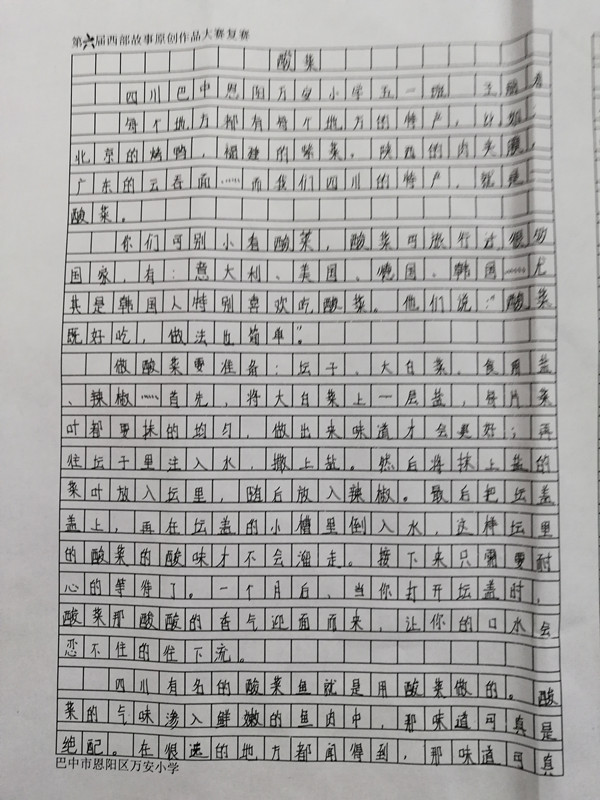 第六届西部故事原创作品大赛复赛
酸菜
四川巴中恩阳万安小学五一班 王
每个地方都有每个地方的特产，比如，
北京的烤鸭，福建的味菜。陕西的肉夹馍，
广东的云吞面……而我们四川的特产，就是
酸菜。
你们可别小看酸菜，酸菜可旅行过很多
国家，有：意大利、美国、德国、韩国……尤
其是韩国人特别喜欢吃酸菜。他们说：“酸菜
既好吃，做法也简单”。
做酸菜要准备：坛子、大白菜、食用盐
、辣椒……首先，将大白菜上一层盐，每片菜
叶都要抹的均匀，做出来味道才会更好；再
往坛子里注入水，撒上盐。然后将抹上盐的
菜叶放入坛里，随后放入辣椒。最后把坛盖
盖上，再在坛盖的小槽里倒入水，这样坛里
的酸菜的酸味才不会溜走。接下来只需要耐
心的等待了。一个月后、当你打开坛盖时，
酸菜那酸酸的香气迎面而来，让你的口水会
忍不住的往下流。
四川有名的酸菜鱼就是用酸菜做的。酸
菜的气味渗入鲜嫩的鱼肉中，那味道可真是
绝配。在很远的地方都闻得到，那味道可真
巴中市恩阳区万安小学